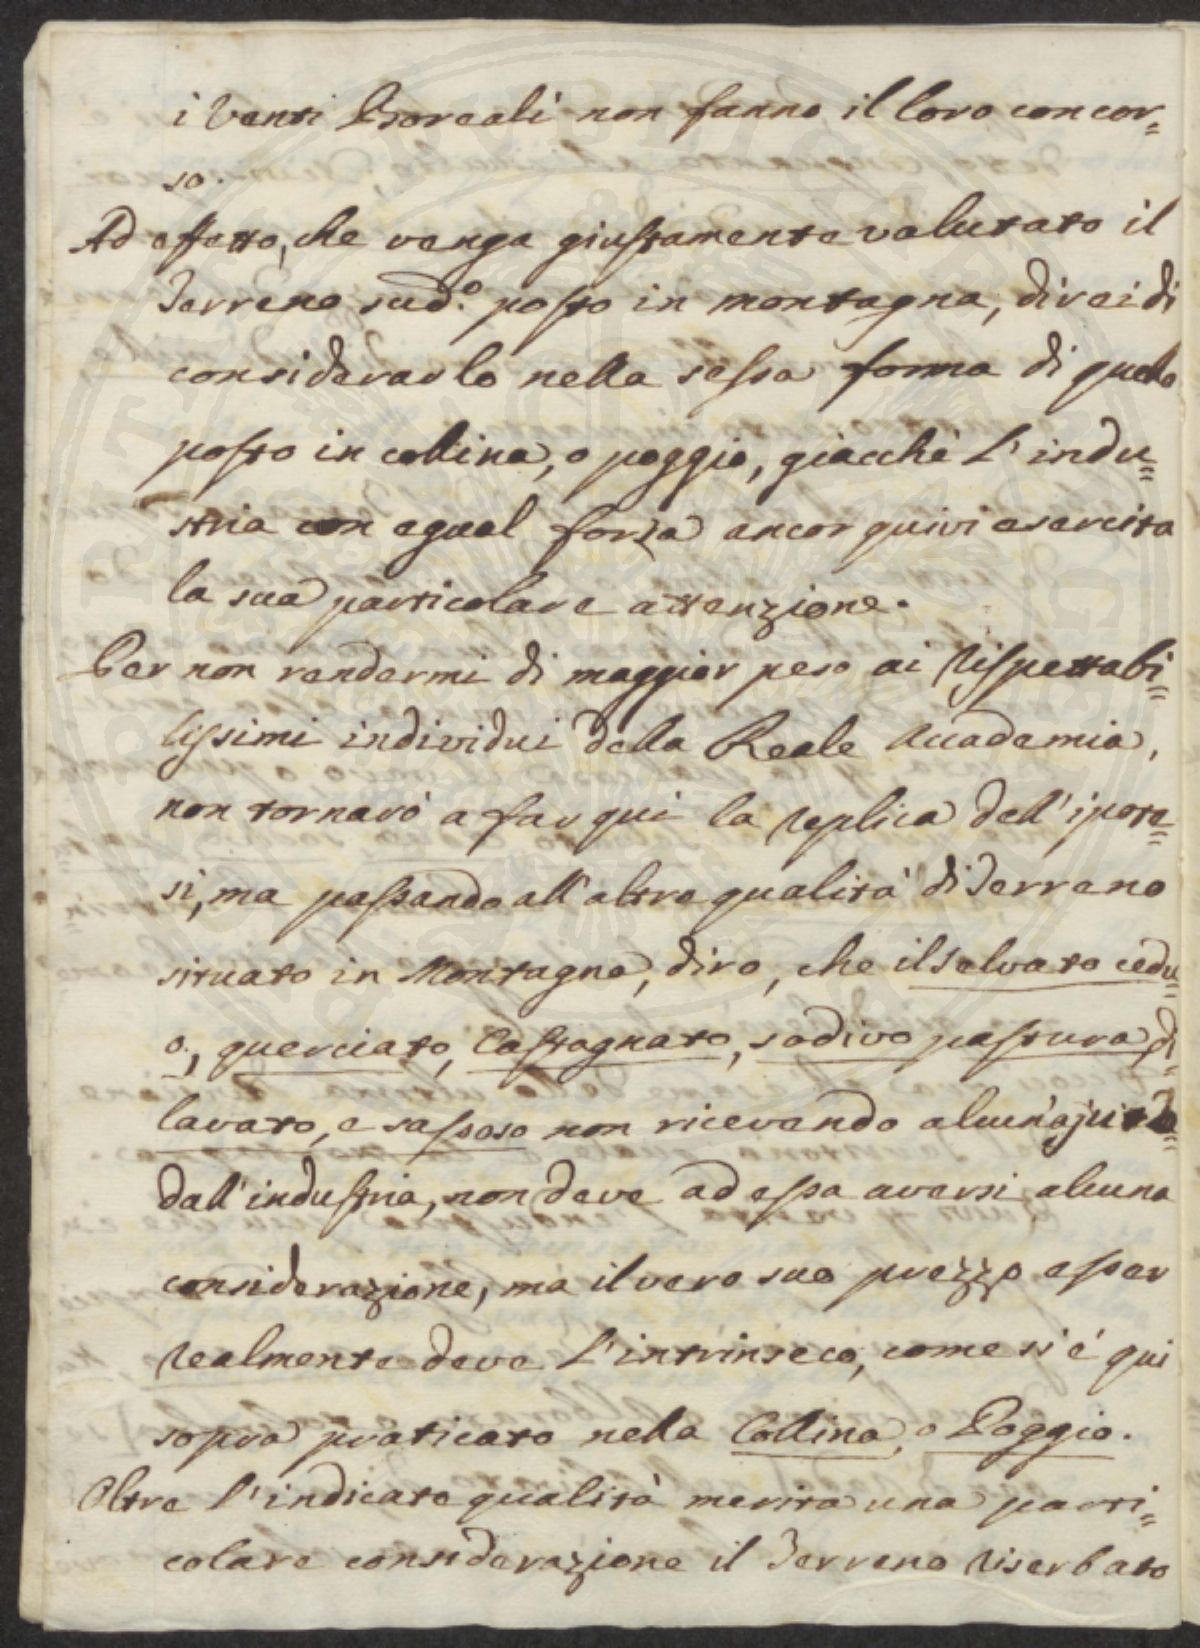 i Venti Boreali non fanno il loro concor=
so.
Ad effetto, che venga giustamente valutato il
Terreno sud.º posto in montagna, direi di
considerarlo nella stessa forma di quello
posto in collina, o poggio, giacchè l'indu=
stria con egual forza ancor quivi esercita
la sua particolare attenzione.
Per non rendermi di maggior peso ai Rispettabi=
lissimi individui della Reale Accademia,
non tornarò a far qui la replica dell'ipote=
si, ma passando all'altre qualità di Terreno
situato in Montagna, dirò, che il selvato cedu=
o, querciato, Castagnato, sodivo pastura, di=
lavato, e sassoso non ricevendo alcun'ajuto
dall'industria, non deve ad essa aversi alcuna
considerazione, ma il vero suo prezzo esser
realmente deve l'intrinseco, come si è qui
sopra praticato nella Collina, o Poggio.
Oltre l'indicate qualità merita una parti=
colare considerazione il Terreno riserbato